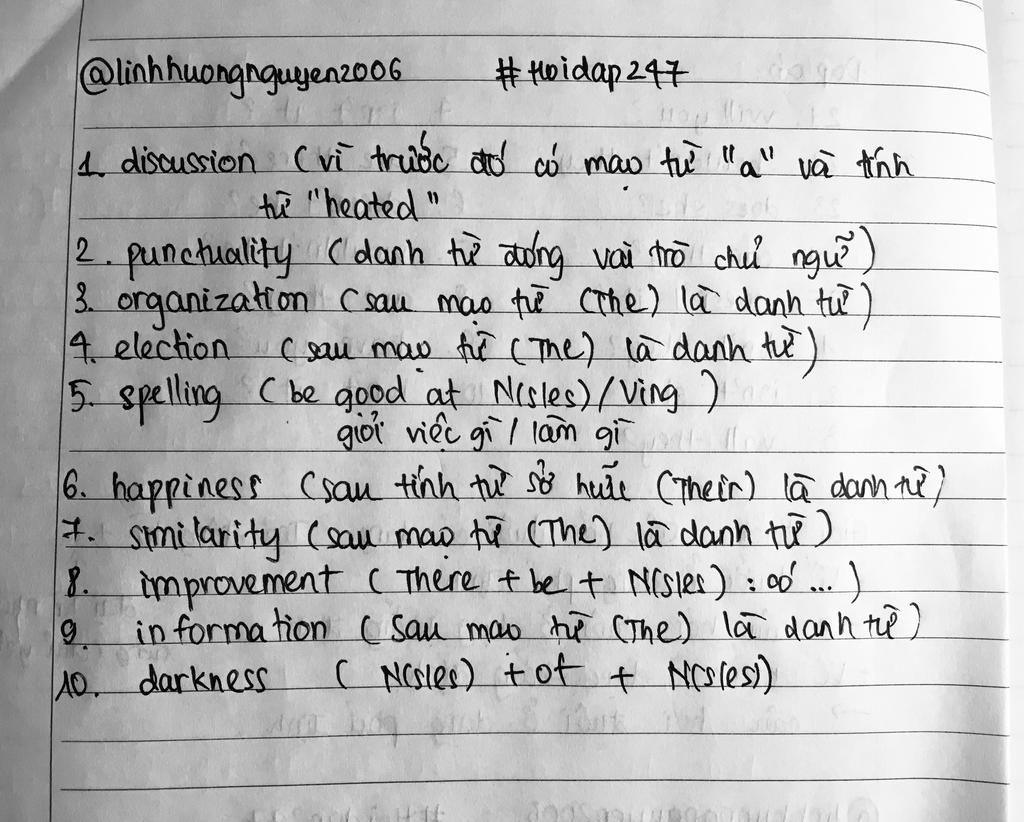 @linhhuongnguyen2006 #hoidap247
1. discussion (vì trước đó có mạo từ "a" và tính
từ "heated"
2. punctuality (danh từ đóng vai trò chủ ngữ)
3. organization (sau mạo từ (The) là danh từ)
4. election (sau mạo từ (The) là danh từ)
5. spelling (be good at N(s/es)/Ving)
giỏi việc gì / làm gì
6. happiness (sau tính từ sở hữu (Their) là danh từ)
7. similarity (sau mạo từ (The) là danh từ)
8. improvement (There + be + N(s/es) : có ...)
9. information (sau mạo từ (The) là danh từ)
10. darkness ( N(s/es) + of + N(s/es))